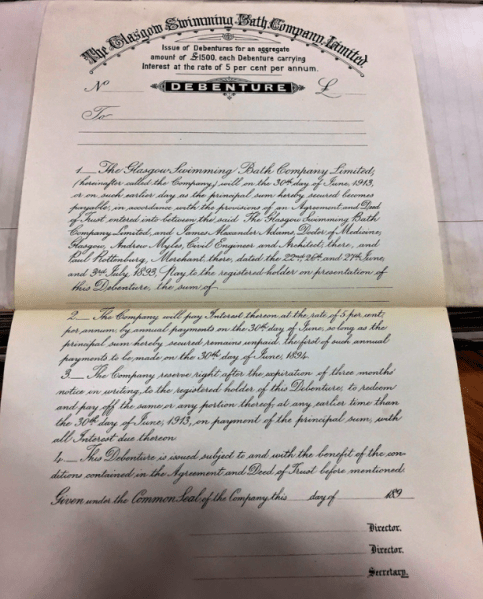 The Glasgow Swimming Bath Company, Limited.
Issue of Debentures for an aggregate
amount of £1500, each Debenture carrying
Interest at the rate of 5 per cent per annum.
No DEBENTURE £
To
1__The Glasgow Swimming Bath Company Limited,
(hereinafter called the Company,) will on the 30th day of June, 1913,
or on such earlier day as the principal sum hereby secured becomes
payable, in accordance with the provisions of an Agreement and Deed
of Trust entered into between the said The Glasgow Swimming Bath
Company Limited, and James Alexander Adams, Doctor of Medicine,
Glasgow, Andrew Myles, Civil Engineer and Architect, there, and
Paul Rottenburg, Merchant, there, dated the 22nd 26th and 27th June,
and 3rd July 1893, Pay to the registered holder on presentation of
this Debenture, the sum of
2__The Company will pay Interest thereon at the rate of 5 per cent;
per annum, by annual payments on the 30th day of June, so long as the
principal sum hereby secured remains unpaid, the first of such annual
payments to be made on the 30th day of June, 1894.
3__The Company reserve right after the expiration of three months'
notice in writing, to the registered holder of this Debenture, to redeem
and pay off the same, or any portion thereof, at any earlier time than
the 30th day of June, 1913, on payment of the principal sum, with
all Interest due thereon
4__This Debenture is issued subject to and with the benefit of the con-
ditions contained in the Agreement and Deed of Trust before mentioned
Given under the Common Seal of the Company this day of 189
Director.
Director.
Secretary.